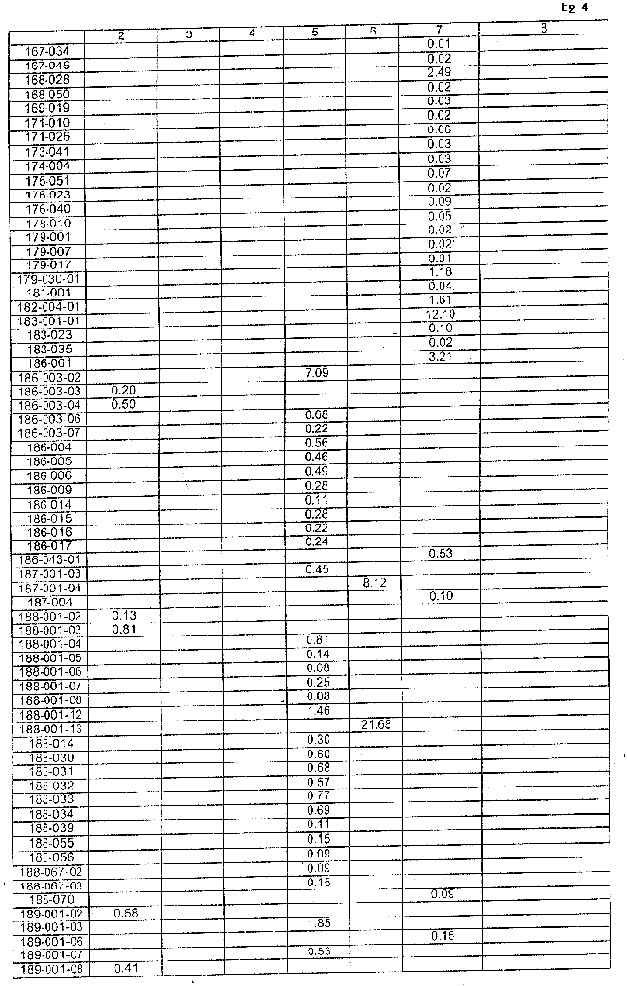 2 3 4 5 6 7 8
167-034 0.01
167-046 0.02
168-028 2.49
168-050 0.02
169-019 0.03
171-010 0.02
171-026 0.00
173-041 0.03
174-004 0.03
175-051 0.07
176-023 0.02
176-040 0.09
178-010 0.05
179-001 0.02
179-007 0.02
179-017 0.01
179-030-01 1.18
181-001 0.04
182-004-01 1.61
183-001-01 12.10
183-023 0.10
183-035 0.02
186-001 3.21
186-003-02 7.09
186-003-03 0.20
186-003-04 0.50
186-003-06 0.08
186-003-07 0.22
186-004 0.56
186-005 0.46
186-006 0.49
186-009 0.28
186-014 0.11
186-015 0.28
186-016 0.22
186-017 0.24
186-043-01 0.53
187-001-03 0.45
187-001-04 8.12
187-004 0.10
188-001-02 0.13
188-001-03 0.81
188-001-04 0.81
188-001-05 0.14
188-001-06 0.08
188-001-07 0.25
188-001-08 0.08
188-001-12 1.46
188-001-13 21.68
188-014 0.30
188-030 0.60
188-031 0.68
188-032 0.57
188-033 0.77
188-034 0.69
188-039 0.11
188-055 0.15
188-056 0.09
188-067-02 0.09
188-067-03 0.15
188-070 0.09
189-001-02 0.58
189-001-03 1.85
189-001-06 0.15
189-001-07 0.53
189-001-08 0.41